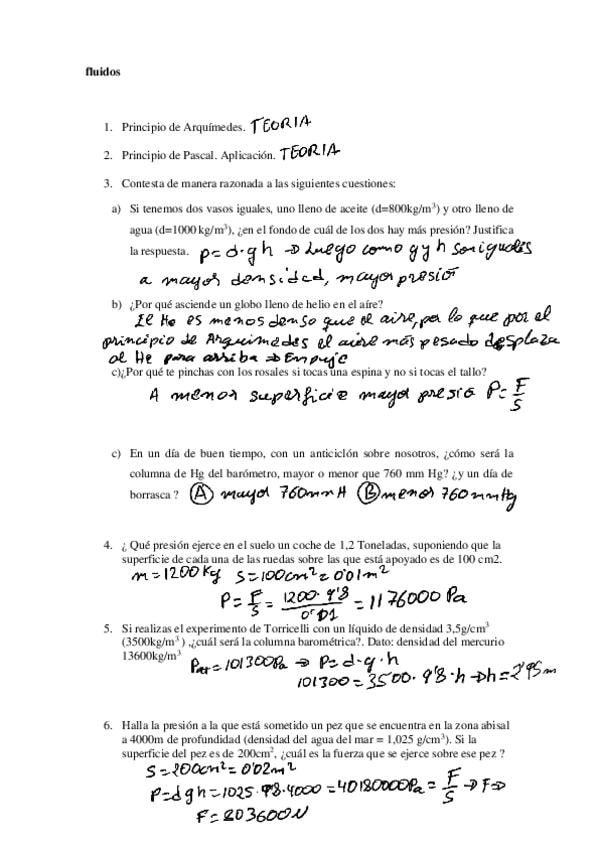 fluidos
1. Principio de Arquímedes. TEORIA
2. Principio de Pascal. Aplicación. TEORIA
3. Contesta de manera razonada a las siguientes cuestiones:
a) Si tenemos dos vasos iguales, uno lleno de aceite (d=800kg/m³) y otro lleno de
agua (d=1000 kg/m³), ¿en el fondo de cuál de los dos hay más presión? Justifica
la respuesta. p=d·g h → Luego como g y h son iguales
a mayor densidad, mayor presió
b) ¿Por qué asciende un globo lleno de helio en el aíre?
El He es menos denso que el aire, por lo que por el
principio de Arquimedes el aire más pesado desplaza
al He para arriba ⇒ Empuje
c)¿Por qué te pinchas con los rosales si tocas una espina y no si tocas el tallo?
A menor superficie mayor presió P=F/S
c) En un día de buen tiempo, con un anticiclón sobre nosotros, ¿cómo será la
columna de Hg del barómetro, mayor o menor que 760 mm Hg? ¿y un día de
borrasca ? (A) mayor 760mm H (B) menor 760 mmHg
4. ¿ Qué presión ejerce en el suelo un coche de 1,2 Toneladas, suponiendo que la
superficie de cada una de las ruedas sobre las que está apoyado es de 100 cm2.
m=1200 kg S=100cm²=0'01m²
P=F/S=1200·9'8/0'01=1176000 Pa
5. Si realizas el experimento de Torricelli con un líquido de densidad 3,5g/cm³
(3500kg/m³ ) ,¿cuál será la columna barométrica?. Dato: densidad del mercurio
13600kg/m³ =101300Pa → P=d·g·h
101300=3500·9'8·h→h=2'95m
6. Halla la presión a la que está sometido un pez que se encuentra en la zona abisal
a 4000m de profundidad (densidad del agua del mar = 1,025 g/cm³). Si la
superficie del pez es de 200cm², ¿cuál es la fuerza que se ejerce sobre ese pez ?
S=200cm²=0'02m²
P=dgh=1025·9'8·4000=40180000Pa=F/S→F⇒
F=803600N